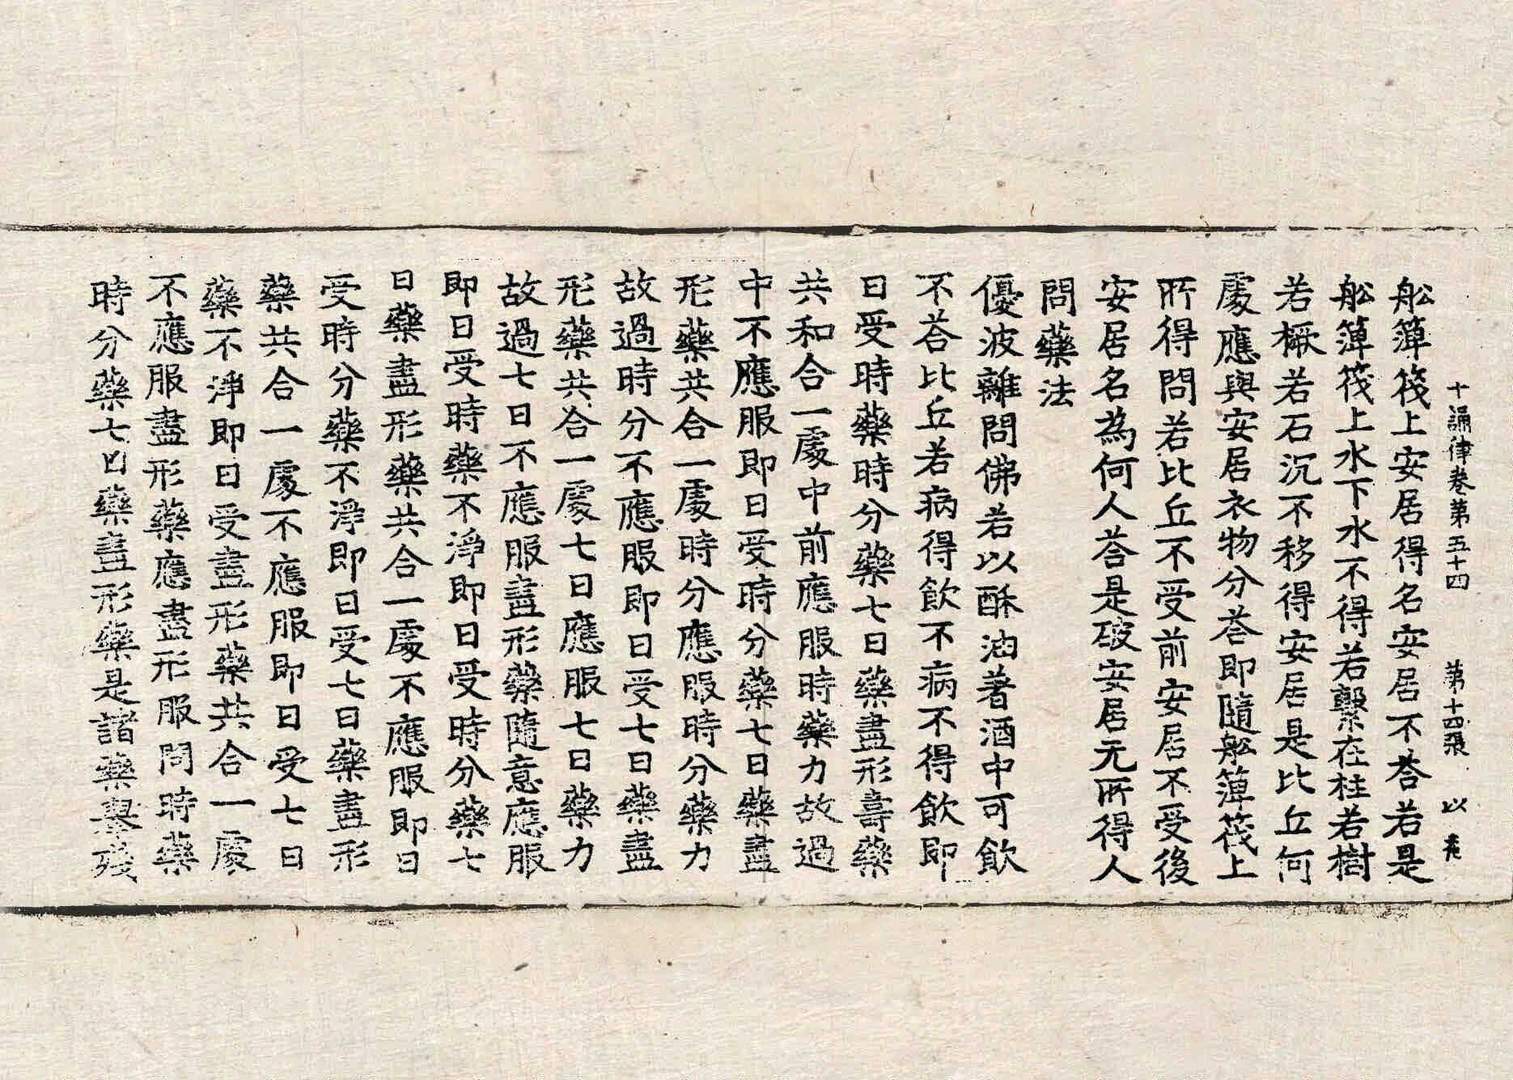 十誦律卷第五十四　第十四張　以
舩簰筏上安居得名安居不荅若是
舩簰筏上水下水不得若繫在柱若樹
若橛若石沉不移得安居是比丘何
處應與安居衣物分荅即隨舩簰筏上
所得問若比丘不受前安居不受後
安居名為何人荅是破安居无所得人
問藥法
優波離問佛若以酥油著酒中可飲
不荅比丘若病得飲不病不得飲即
日受時藥時分藥七日藥盡形壽藥
共和合一處中前應服時藥力故過
中不應服即日受時分藥七日藥盡
形藥共合一處時分應服時分藥力
故過時分不應服即日受七日藥盡
形藥共合一處七日應服七日藥力
故過七日不應服盡形藥隨意應服
即日受時藥不淨即日受時分藥七
日藥盡形藥共合一處不應服即日
受時分藥不淨即日受七日藥盡形
藥共合一處不應服即日受七日
藥不淨即日受盡形藥共合一處
不應服盡形藥應盡形服問時藥
時分藥七日藥盡形藥是諸藥舉殘